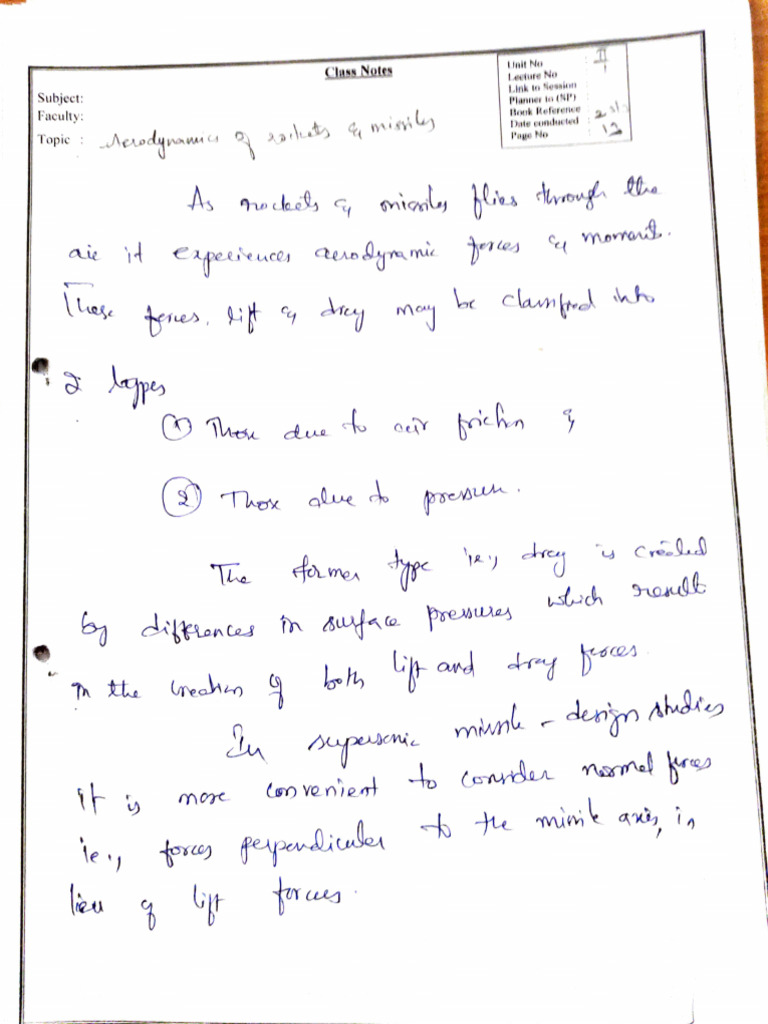 Class Notes
Unit No : II
Lecture No : 1
Link to Session :
Planner to (SP) :
Book Reference :
Date conducted :
Page No : 12
Subject:
Faculty:
Topic : Aerodynamics of rockets & missiles
As rockets & missiles flies through the
air it experiences aerodynamic forces & moments.
These forces, lift & drag may be classified into
2 types
① Those due to air friction &
② Those due to pressure.
The former type ie., drag is created
by differences in surface pressures which result
in the creation of both lift and drag forces.
In supersonic missile - design studies
it is more convenient to consider normal forces
ie., forces perpendicular to the missile axis, in
lieu of lift forces.